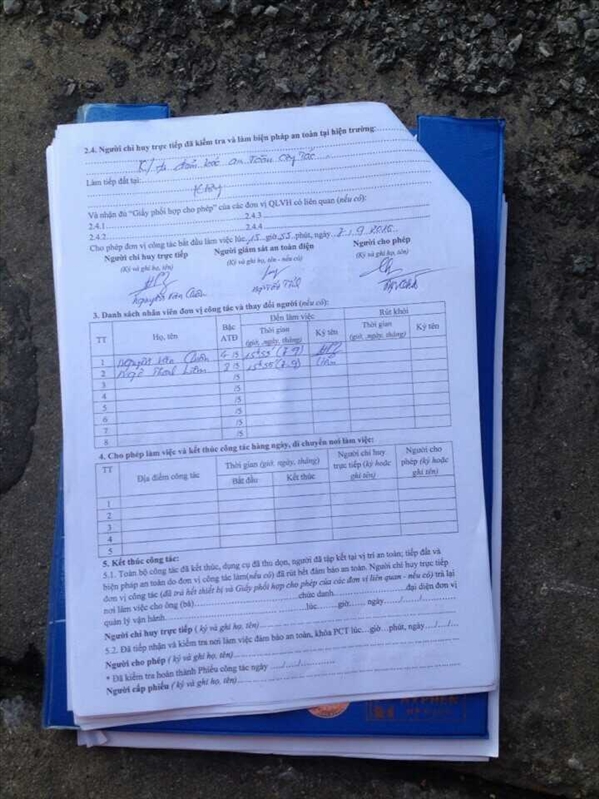 2.4. Người chỉ huy trực tiếp đã kiểm tra và làm biện pháp an toàn tại hiện trường:
đảm bảo an toàn công tác
Làm tiếp đất tại:
Và nhận đủ "Giấy phối hợp cho phép" của các đơn vị QLVH có liên quan (nếu có):
2.4.1 2.4.3
2.4.2 2.4.4
Cho phép đơn vị công tác bắt đầu làm việc lúc 15 giờ 55 phút, ngày
Người chỉ huy trực tiếp Người giám sát an toàn điện Người cho phép
(Ký và ghi họ, tên) (Ký và ghi họ, tên - nếu có) (Ký và ghi họ, tên)
Nguyễn Văn
3. Danh sách nhân viên đơn vị công tác và thay đổi người (nếu có):
TT Họ, tên Bậc ATĐ Đến làm việc Rút khỏi
Thời gian (giờ, ngày, tháng) Ký tên Thời gian (giờ, ngày, tháng) Ký tên
1 Nguyễn Văn /5 15h55
2 Ngô /5 15h55
3 /5
4 /5
5 /5
6 /5
7 /5
8
4. Cho phép làm việc và kết thúc công tác hàng ngày, di chuyển nơi làm việc:
TT Địa điểm công tác Thời gian (giờ, ngày, tháng) Người chỉ huy trực tiếp (ký hoặc ghi tên) Người cho phép (ký hoặc ghi tên)
Bắt đầu Kết thúc
1
2
3
4
5
5. Kết thúc công tác:
5.1. Toàn bộ công tác đã kết thúc, dụng cụ đã thu dọn, người đã tập kết tại vị trí an toàn; tiếp đất và
biện pháp an toàn do đơn vị công tác làm(nếu có) đã rút hết đảm bảo an toàn. Người chỉ huy trực tiếp
đơn vị công tác (đã trả hết thiết bị và Giấy phối hợp cho phép của các đơn vị liên quan - nếu có) trả lại
nơi làm việc cho ông (bà) chức danh đại diện đơn vị
quản lý vận hành lúc giờ ngày / /
Người chỉ huy trực tiếp ( ký và ghi họ, tên)
5.2. Đã tiếp nhận và kiểm tra nơi làm việc đảm bảo an toàn, khóa PCT lúc giờ phút, ngày / /
Người cho phép ( ký và ghi họ, tên)
* Đã kiểm tra hoàn thành Phiếu công tác ngày / /
Người cấp phiếu ( ký và ghi họ, tên)